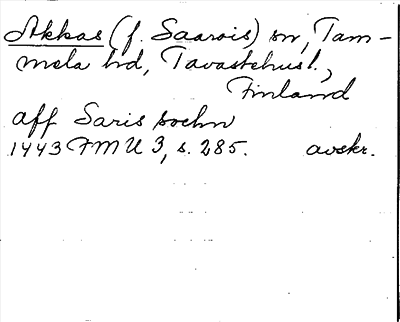 Akkas (f. Saarois) sn, Tam-
mela hd, Tavastehusl.,
Finland
aff Saris soehn
1443 FMU 3, s. 285. avskr.